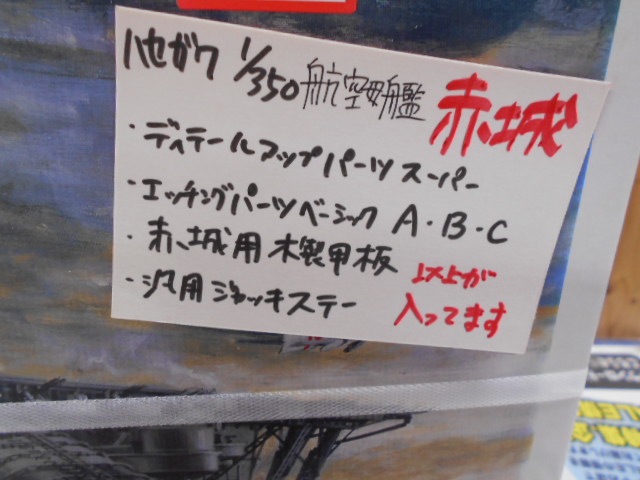 ハセガワ 1/350 航空母艦 赤城
・ディテールアップパーツ スーパー
・エッチングパーツベーシック A・B・C
・赤城用 木製甲板
・汎用ジャッキステー
以上が
入ってます